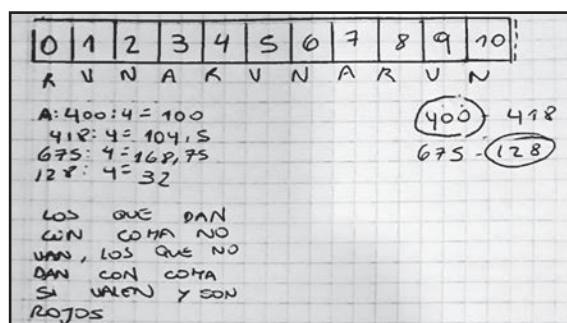 0 1 2 3 4 5 6 7 8 9 10
R V N A R V N A R V N
A: 400:4 = 100
418:4 = 104,5
675:4 = 168,75
128:4 = 32
400 - 418
675 - 128
LOS QUE DAN
CON COMA NO
VAN, LOS QUE NO
DAN CON COMA
SI VALEN Y SON
ROJOS